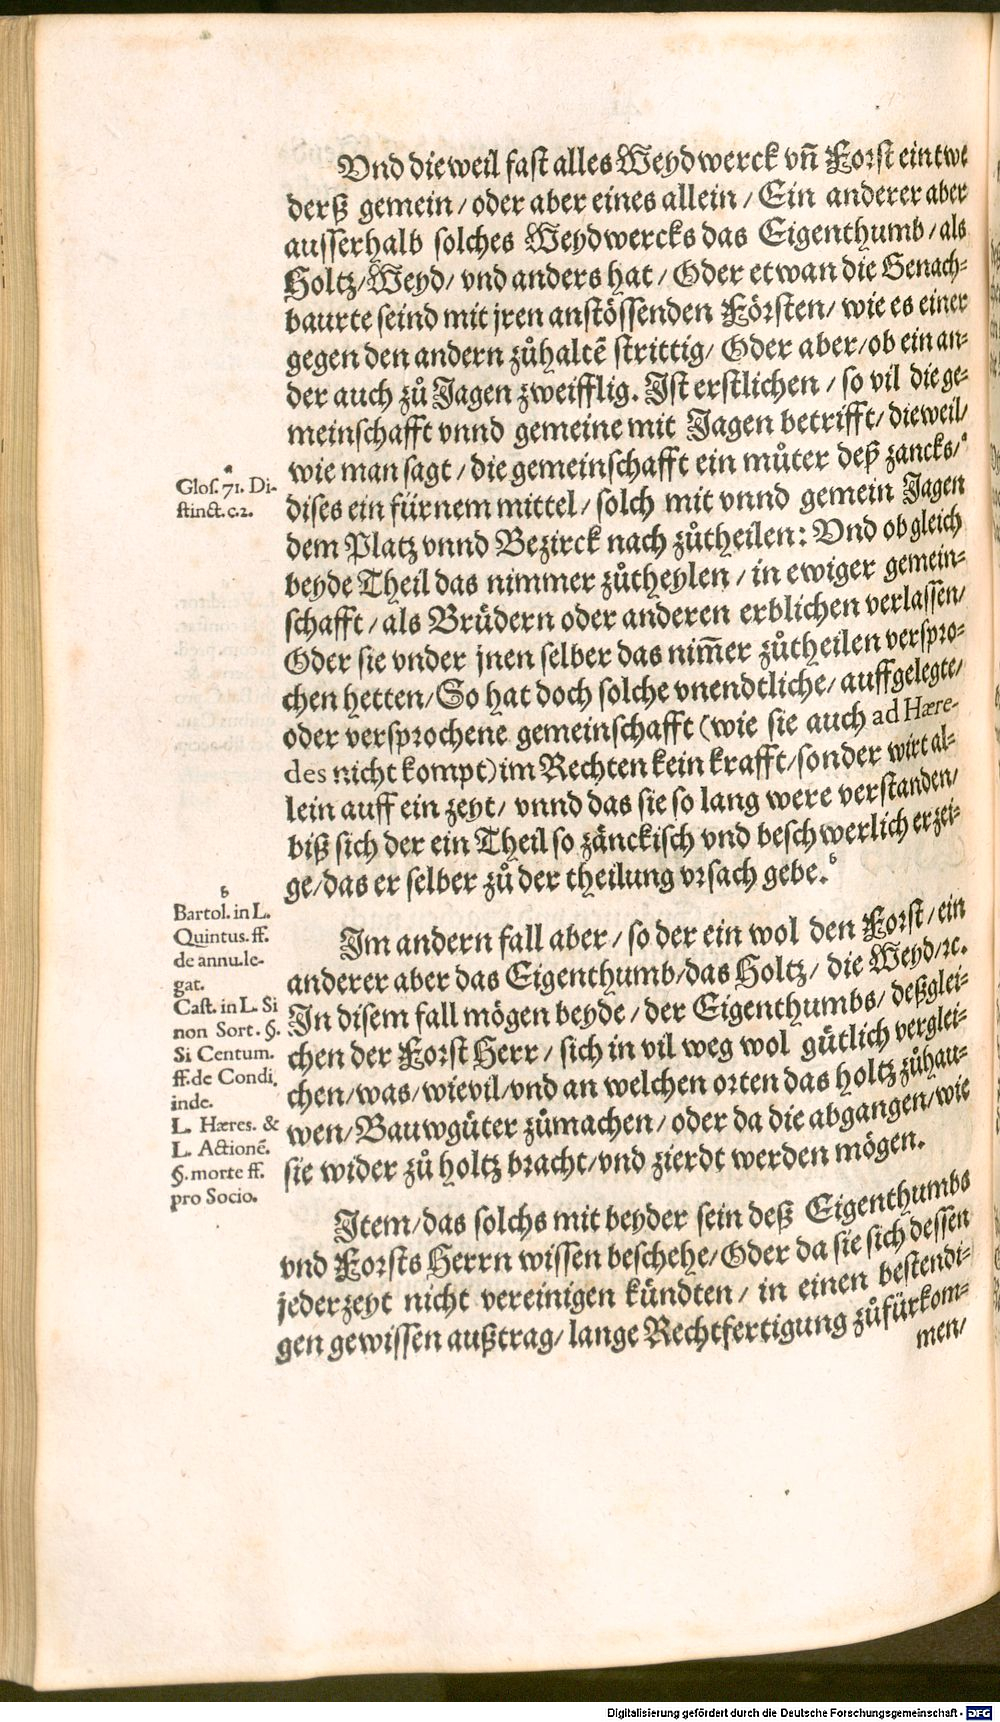 Vnd dieweil fast alles Weydwerck vñ Forst eintwe
derß gemein / oder aber eines allein / Ein anderer aber
ausserhalb solches Weydwercks das Eigenthumb / als
Holtz / Weyd / vnd anders hat / Oder etwan die Benach-
baurte seind mit jren anstössenden Försten / wie es einer
gegen den andern zůhaltẽ strittig / Oder aber / ob ein an-
der auch zů Jagen zweifflig. Ist erstlichen / so vil die ge-
meinschafft vnnd gemeine mit Jagen betrifft / dieweil /
wie man sagt / die gemeinschafft ein můter deß zancks / ª
a
Glos. 71. Di-
stinct. c.2.
dises ein fürnem mittel / solch mit vnnd gemein Jagen
dem Platz vnnd Bezirck nach zůtheilen: Vnd ob gleich
beyde Theil das nimmer zůtheylen / in ewiger gemein-
schafft / als Brüdern oder anderen erblichen verlassen /
Oder sie vnder jnen selber das nim̃er zůtheilen verspro-
chen hetten / So hat doch solche vnendtliche / auffgelegte /
oder versprochene gemeinschafft (wie sie auch ad Hære-
des nicht kompt) im Rechten kein krafft / sonder wirt al-
lein auff ein zeyt / vnnd das sie so lang were verstanden /
biß sich der ein Theil so zänckisch vnd beschwerlich erzei-
ge / das er selber zů der theilung vrsach gebe. b
b
Bartol. in L.
Quintus. ff.
de annu. le-
gat.
Cast. in L. Si
non Sort. §.
Si Centum.
ff. de Condi.
inde.
L. Hæres. &
L. Actionẽ.
§. morte ff.
pro Socio.
Im andern fall aber / so der ein wol den Forst / ein
anderer aber das Eigenthumb / das Holtz / die Weyd / ꝛc.
In disem fall mögen beyde / der Eigenthumbs / deßglei-
chen der Forst Herr / sich in vil weg wol gütlich verglei-
chen / was / wievil / vnd an welchen orten das holtz zůhau-
wen / Bauwgüter zůmachen / oder da die abgangen / wie
sie wider zů holtz bracht / vnd zierdt werden mögen.
Item / das solchs mit beyder sein deß Eigenthumbs
vnd Forsts Herrn wissen beschehe / Oder da sie sich dessen
jederzeyt nicht vereinigen kündten / in einen bestendi-
gen gewissen außtrag / lange Rechtfertigung zůfürkom-
men /
Digitalisierung gefördert durch die Deutsche Forschungsgemeinschaft - DFG